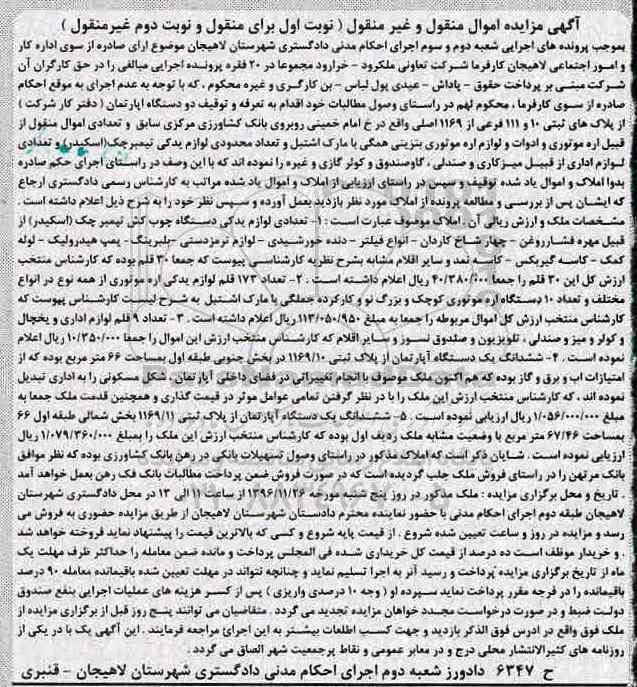 آگهی مزایده اموال منقول و غیر منقول ( نوبت اول برای منقول و نوبت دوم غیرمنقول )
بموجب پرونده های اجرایی شعبه دوم و سوم اجرای احکام مدنی دادگستری شهرستان لاهیجان موضوع ارای صادره از سوی اداره کار
و امور اجتماعی لاهیجان کارفرما شرکت تعاونی ملکرود - خرارود مجموعا در ۲۰ فقره پرونده اجرایی مبالغی را در حق کارگران آن
شرکت مبنی بر پرداخت حقوق - پاداش - عیدی پول لباس - بن کارگری و غیره محکوم ، که با توجه به عدم اجرای به موقع احکام
صادره از سوی کارفرما ، محکوم لهم در راستای وصول مطالبات خود اقدام به تعرفه و توقیف دو دستگاه اپارتمان ( دفتر کار شرکت )
از پلاک های ثبتی ۱۰ و ۱۱۱ فرعی از ۱۱۶۹ اصلی واقع در خ امام خمینی روبروی بانک کشاورزی مرکزی سابق و تعدادی اموال منقول از
قبیل اره موتوری و ادوات و لوازم اره موتوری بنزینی همگی با مارک اشتیل و تعداد محدودی لوازم یدکی تیمبرچک(اسکیدر) و تعدادی
لوازم اداری از قبیل میزکاری و صندلی ، گاوصندوق و کولر گازی و غیره را نموده اند که با این وصف در راستای اجرای حکم صادره
بدوا املاک و اموال یاد شده توقیف و سپس در راستای ارزیابی از املاک و اموال یاد شده مراتب به کارشناس رسمی دادگستری ارجاع
که ایشان پس از بررسی و مطالعه پرونده از املاک مورد نظر بازدید بعمل آورده و سپس نظر خود را به شرح ذیل اعلام داشته است .
مشخصات ملک و ارزش ریالی آن : املاک موصوف عبارت است : ۱- تعدادی لوازم یدکی دستگاه چوب کش تیمبر چک (اسکیدر) از
قبیل مهره فشارروغن - چهار شاخ کاردان - انواع فیلتر - دنده خورشیدی - لوازم ترمزدستی -بلبرینگ - پمپ هیدرولیک - لوله
کمک - کاسه گیربکس - کاسه نمد و سایر اقلام مشابه بشرح نظریه کارشناسی پیوست که جمعا ۳۰ قلم بوده که کارشناس منتخب
ارزش کل این ۳۰ قلم را جمعا ۴۰/۳۸۰/۰۰۰ ریال اعلام داشته است . ۲- تعداد ۱۷۳ قلم لوازم یدکی اره موتوری از همه نوع در انواع
مختلف و تعداد ۱۰ دستگاه اره موتوری کوچک و بزرگ نو و کارکرده جملگی با مارک اشتیل به شرح لیست کارشناس پیوست که
کارشناس منتخب ارزش کل اموال مربوطه را جمعا به مبلغ ۱۱۳/۰۵۰/۹۵۰ ریال اعلام داشته است . ۳- تعداد ۹ قلم لوازم اداری و یخچال
و کولر و میز و صندلی ، تلویزیون و صندوق نسوز و سایر اقلام که کارشناس منتخب ارزش این اموال را جمعا ۱۰/۳۵۰/۰۰۰ ریال اعلام
نموده است . ۴- ششدانگ یک دستگاه آپارتمان از پلاک ثبتی ۱۱۶۹/۱۰ در بخش جنوبی طبقه اول بمساحت ۶۶ متر مربع بوده که از
امتیازات اب و برق و گاز بوده که هم اکنون ملک موصوف با انجام تغییراتی در فضای داخلی آپارتمان ، شکل مسکونی را به اداری تبدیل
نموده اند ، که کارشناس منتخب ارزش این ملک را با در نظر گرفتن تمامی عوامل موثر در قیمت گذاری و همچنین قدمت ملک جمعا به
مبلغ ۱/۰۵۶/۰۰۰/۰۰۰ ریال ارزیابی نموده است . ۵- ششدانگ یک دستگاه آپارتمان از پلاک ثبتی ۱۱۶۹/۱۱ بخش شمالی طبقه اول ۶۶
بمساحت ۶۷/۴۶ متر مربع با وضعیت مشابه ملک ردیف اول بوده که کارشناس منتخب ارزش این ملک را بمبلغ ۱/۰۷۹/۳۶۰/۰۰۰ ریال
ارزیابی نموده است . شایان ذکر است که املاک مذکور در راستای وصول تسهیلات بانکی در رهن بانک کشاورزی بوده که نظر موافق
بانک مرتهن را در راستای فروش ملک جلب گردیده است که در صورت فروش ضمن پرداخت مطالبات بانک فک رهن بعمل خواهد آمد
. تاریخ و محل برگزاری مزایده : ملک مذکور در روز پنج شنبه مورخه ۱۳۹۶/۱۱/۲۶ از ساعت ۱۱ الی ۱۳ در محل دادگستری شهرستان
لاهیجان طبقه دوم اجرای احکام مدنی با حضور نماینده محترم دادستان شهرستان لاهیجان از طریق مزایده حضوری به فروش می
رسد و مزایده در روز و ساعت تعیین شده شروع . از قیمت پایه شروع و کسی که بالاترین قیمت را پیشنهاد نماید فروخته خواهد شد
. و خریدار موظف است ده درصد از قیمت کل خریداری شده فی المجلس پرداخت و مانده ضمن معامله را حداکثر ظرف مهلت یک
ماه از تاریخ برگزاری مزایده پرداخت و رسید آنر به اجرا تسلیم نماید و چنانچه نتواند در مهلت تعیین شده باقیمانده معامله ۹۰ درصد
باقیمانده را در فرجه مقرر پرداخت نماید سپرده او ( وجه ۱۰ درصدی واریزی ) پس از کسر هزینه های عملیات اجرایی بنفع صندوق
دولت ضبط و در صورت درخواست مجدد خواهان مزایده تجدید می گردد . متقاضیان می توانند پنج روز قبل از برگزاری مزایده از
ملک فوق واقع در ادرس فوق الذکر بازدید و جهت کسب اطلعات بیشتر به این اجرای مراجعه فرمایند . این آگهی یک با در یکی از
روزنامه های کثیرالانتشار محلی درج و در معابر عمومی و نقاط پرجمعیت شهر الصاق می گردد .
ح ۶۳۴۷ دادورز شعبه دوم اجرای احکام مدنی دادگستری شهرستان لاهیجان - قنبری